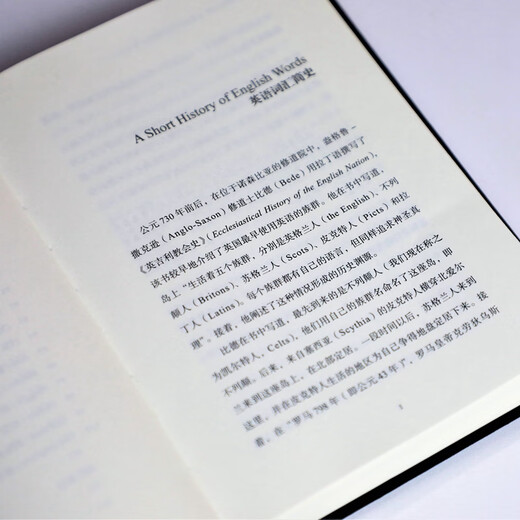 A Short History of English Words
英语词汇简史
公元 730 年前后，在位于诺森比亚的修道院中，盎格鲁－
撒克逊（Anglo-Saxon）修道士比德（Bede）用拉丁语撰写了
《英吉利教会史》（Ecclesiastical History of the English Nation），
该书较早地介绍了英国最早使用英语的族群。他在书中写道，
岛上“生活着五个族群，分别是英格兰人（the English）、不列
颠人（Britons）、苏格兰人（Scots）、皮克特人（Picts）和拉
丁人（Latins）。每个族群都有自己的语言，但同样追求神圣真
理”。接着，他阐述了这种情况形成的历史渊源。
比德在书中写道，最先到来的是不列颠人（我们现在称之
为凯尔特人，Celts），他们用自己的族名命名了这座岛，即
不列颠。后来，来自塞西亚（Scythia）的皮克特人横穿北爱尔
兰来到这座岛上，在北部定居。一段时间以后，苏格兰人来到
这里，并在皮克特人生活的地区为自己争得地盘定居下来。接
着，在“罗马 798 年（即公元 43 年），罗马皇帝克劳狄乌斯